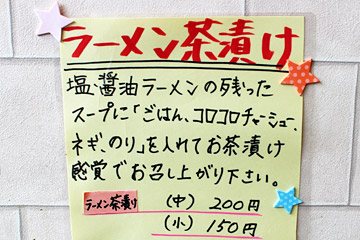 ラーメン茶漬け
塩、醤油ラーメンの残った
スープに「ごはん、コロコロチャーシュー、
ネギ、のり」を入れてお茶漬け
感覚でお召し上がり下さい。
ラーメン茶漬け (中) 200円
(小) 150円